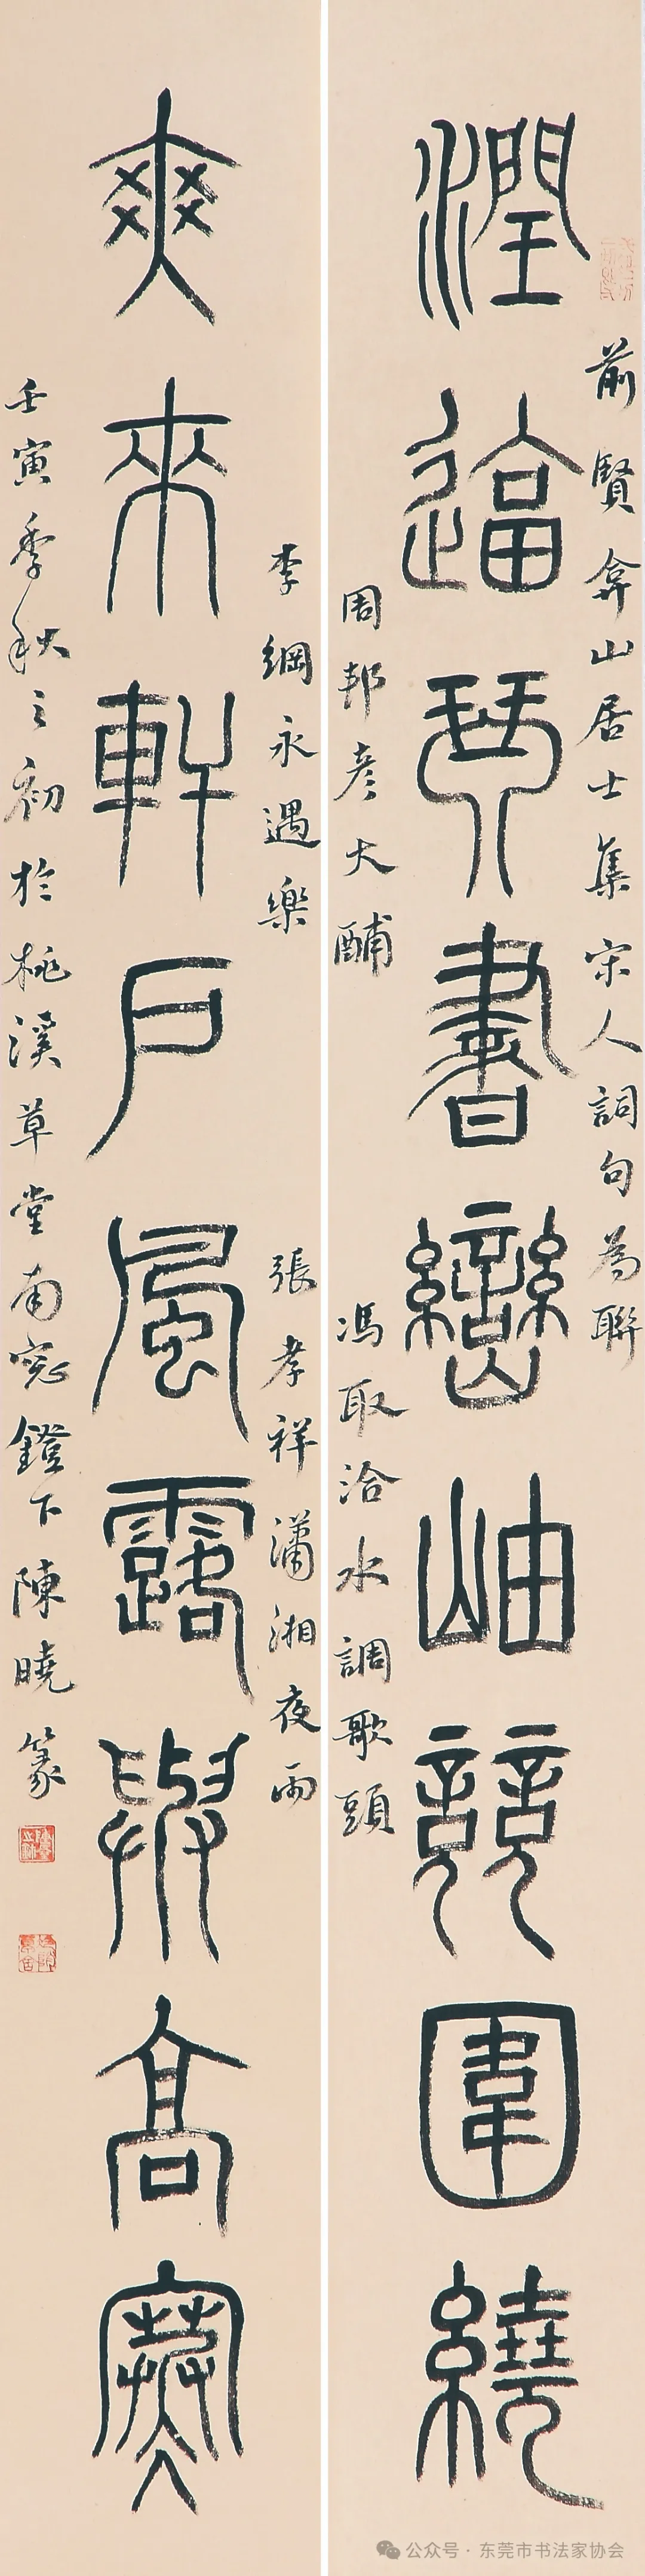 前賢弇山居士集宋人詞句為聯
潤逼琴書巒岫競圍繞
周邦彦大酺
馮取洽水調歌頭
李綱永遇樂
張孝祥瀟湘夜雨
爽來軒戶風露與高寒
壬寅季秋之初於桃溪草堂南窓鐙下陳曉篆
公众号 · 东莞市书法家协会